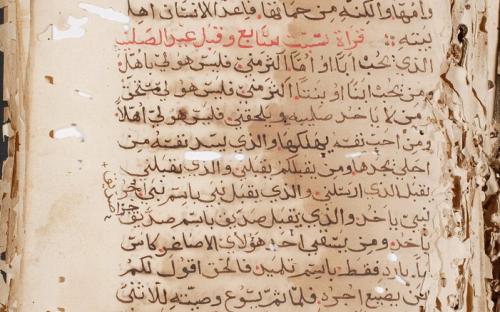 وامها والكنه من حماتها فاعدا الانسان اهل
بيته :: قراة سبت سابع وقبل عيد الصليب
الذي يحب ابًا او امًا اكثر مني فليس هو لي باهل
ومن يحب ابنًا او بنتًا اكثر مني فليس هو لي
من لا ياخد صليبه ويلحقني فليس هو لي اهلا
ومن احب نفسه يهلكها والذي يبيد نفسه من
اجلي يجدها ومن يقبلكم يقبلني والذي يقبلني
يقبل الذي ارسلني والذي يقبل نبي باسم نبي اجر
لنبي ياخد والذي يقبل صديق باسم صديق
ياخد ومن يسقي احد هولاي الاصاغر كاس
بارد فقط باسم تلميذ فالحق اقول لكم
لن يضيع اجره فلما تم يسوع وصيته للاثني